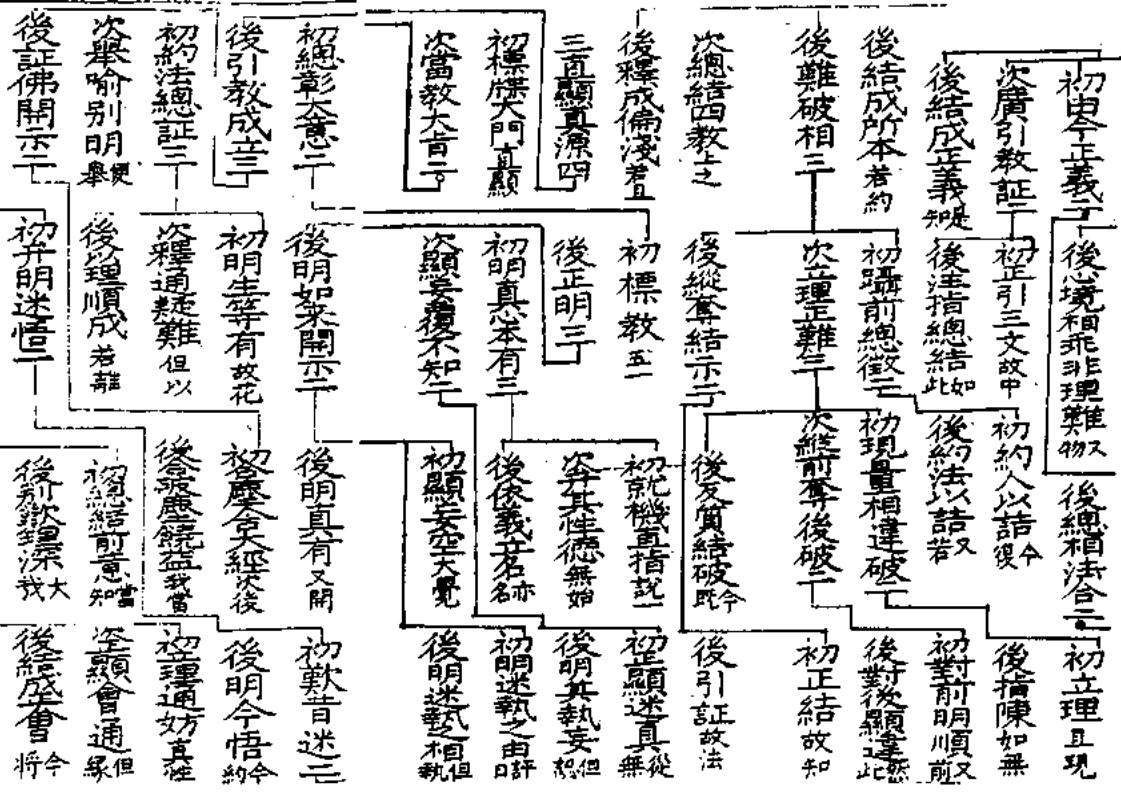 初由今正義二
次廣引教証二
後結成正義知是
後結成所本若約
後難破相三
次總結四教上之
後釋成偏淺若且
三直顯真源四
初標牒大門真顯
次當教大旨二
初總彰大意二
後引教成立三
初約法總証三
次舉喻別明舉便
後証佛開示二
後心境相乖非理難物又
初正引三文故中
後注指總結此如
初躡前總徵二
次立理正難三
後縱奪結示二
初標教五一
後正明三
初明真本有三
次顯妄覆不知二
後明如來開示二
初明生等有故花
次釋通疑難但以
後以理順成若離
初弁明迷悟二
後總相法合二
初約人以詰後今
後約法以詰若又
初現量相違破二
次縱前奪後破二
後反質結破既今
初就機直指說一
次弁其性德無始
後依義立名名亦
初顯妄空大覺
後明真有又開
初合塵含大經次後
後合破塵饒益我當
初總結前意知當
後別歎環深我大
初立理且現
後指陳如無
初對前明順前又
後對後顯違此然
初正結故知
後引証故法
初正顯迷真無從
後明其執妄総但
初明迷執之由曰評
後明迷執相執但
初歎昔迷二
後明今悟約今
初立理通妨真性
次顯會通緣但
後結成會將今